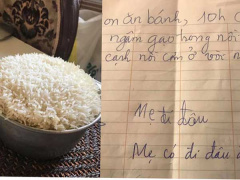 ơn ăn bánh, 10h
ngâm gạo trong nồi
cạnh nồi cơm ở
Mẹ đi đâu
Mẹ có đi đâu đ